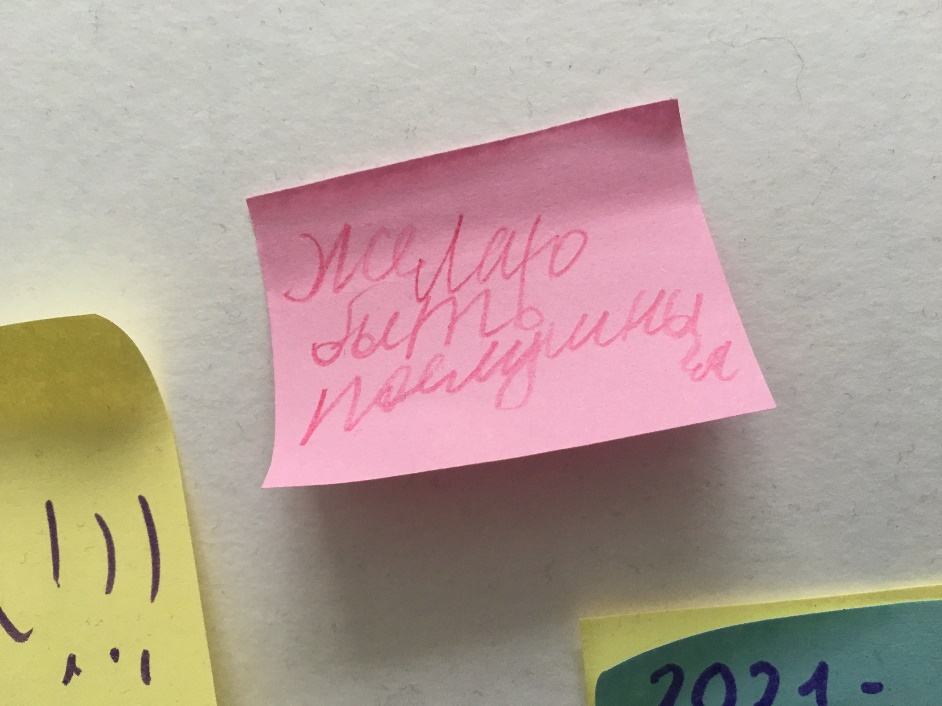 Желаю
быть
послушны
!!!
2021-